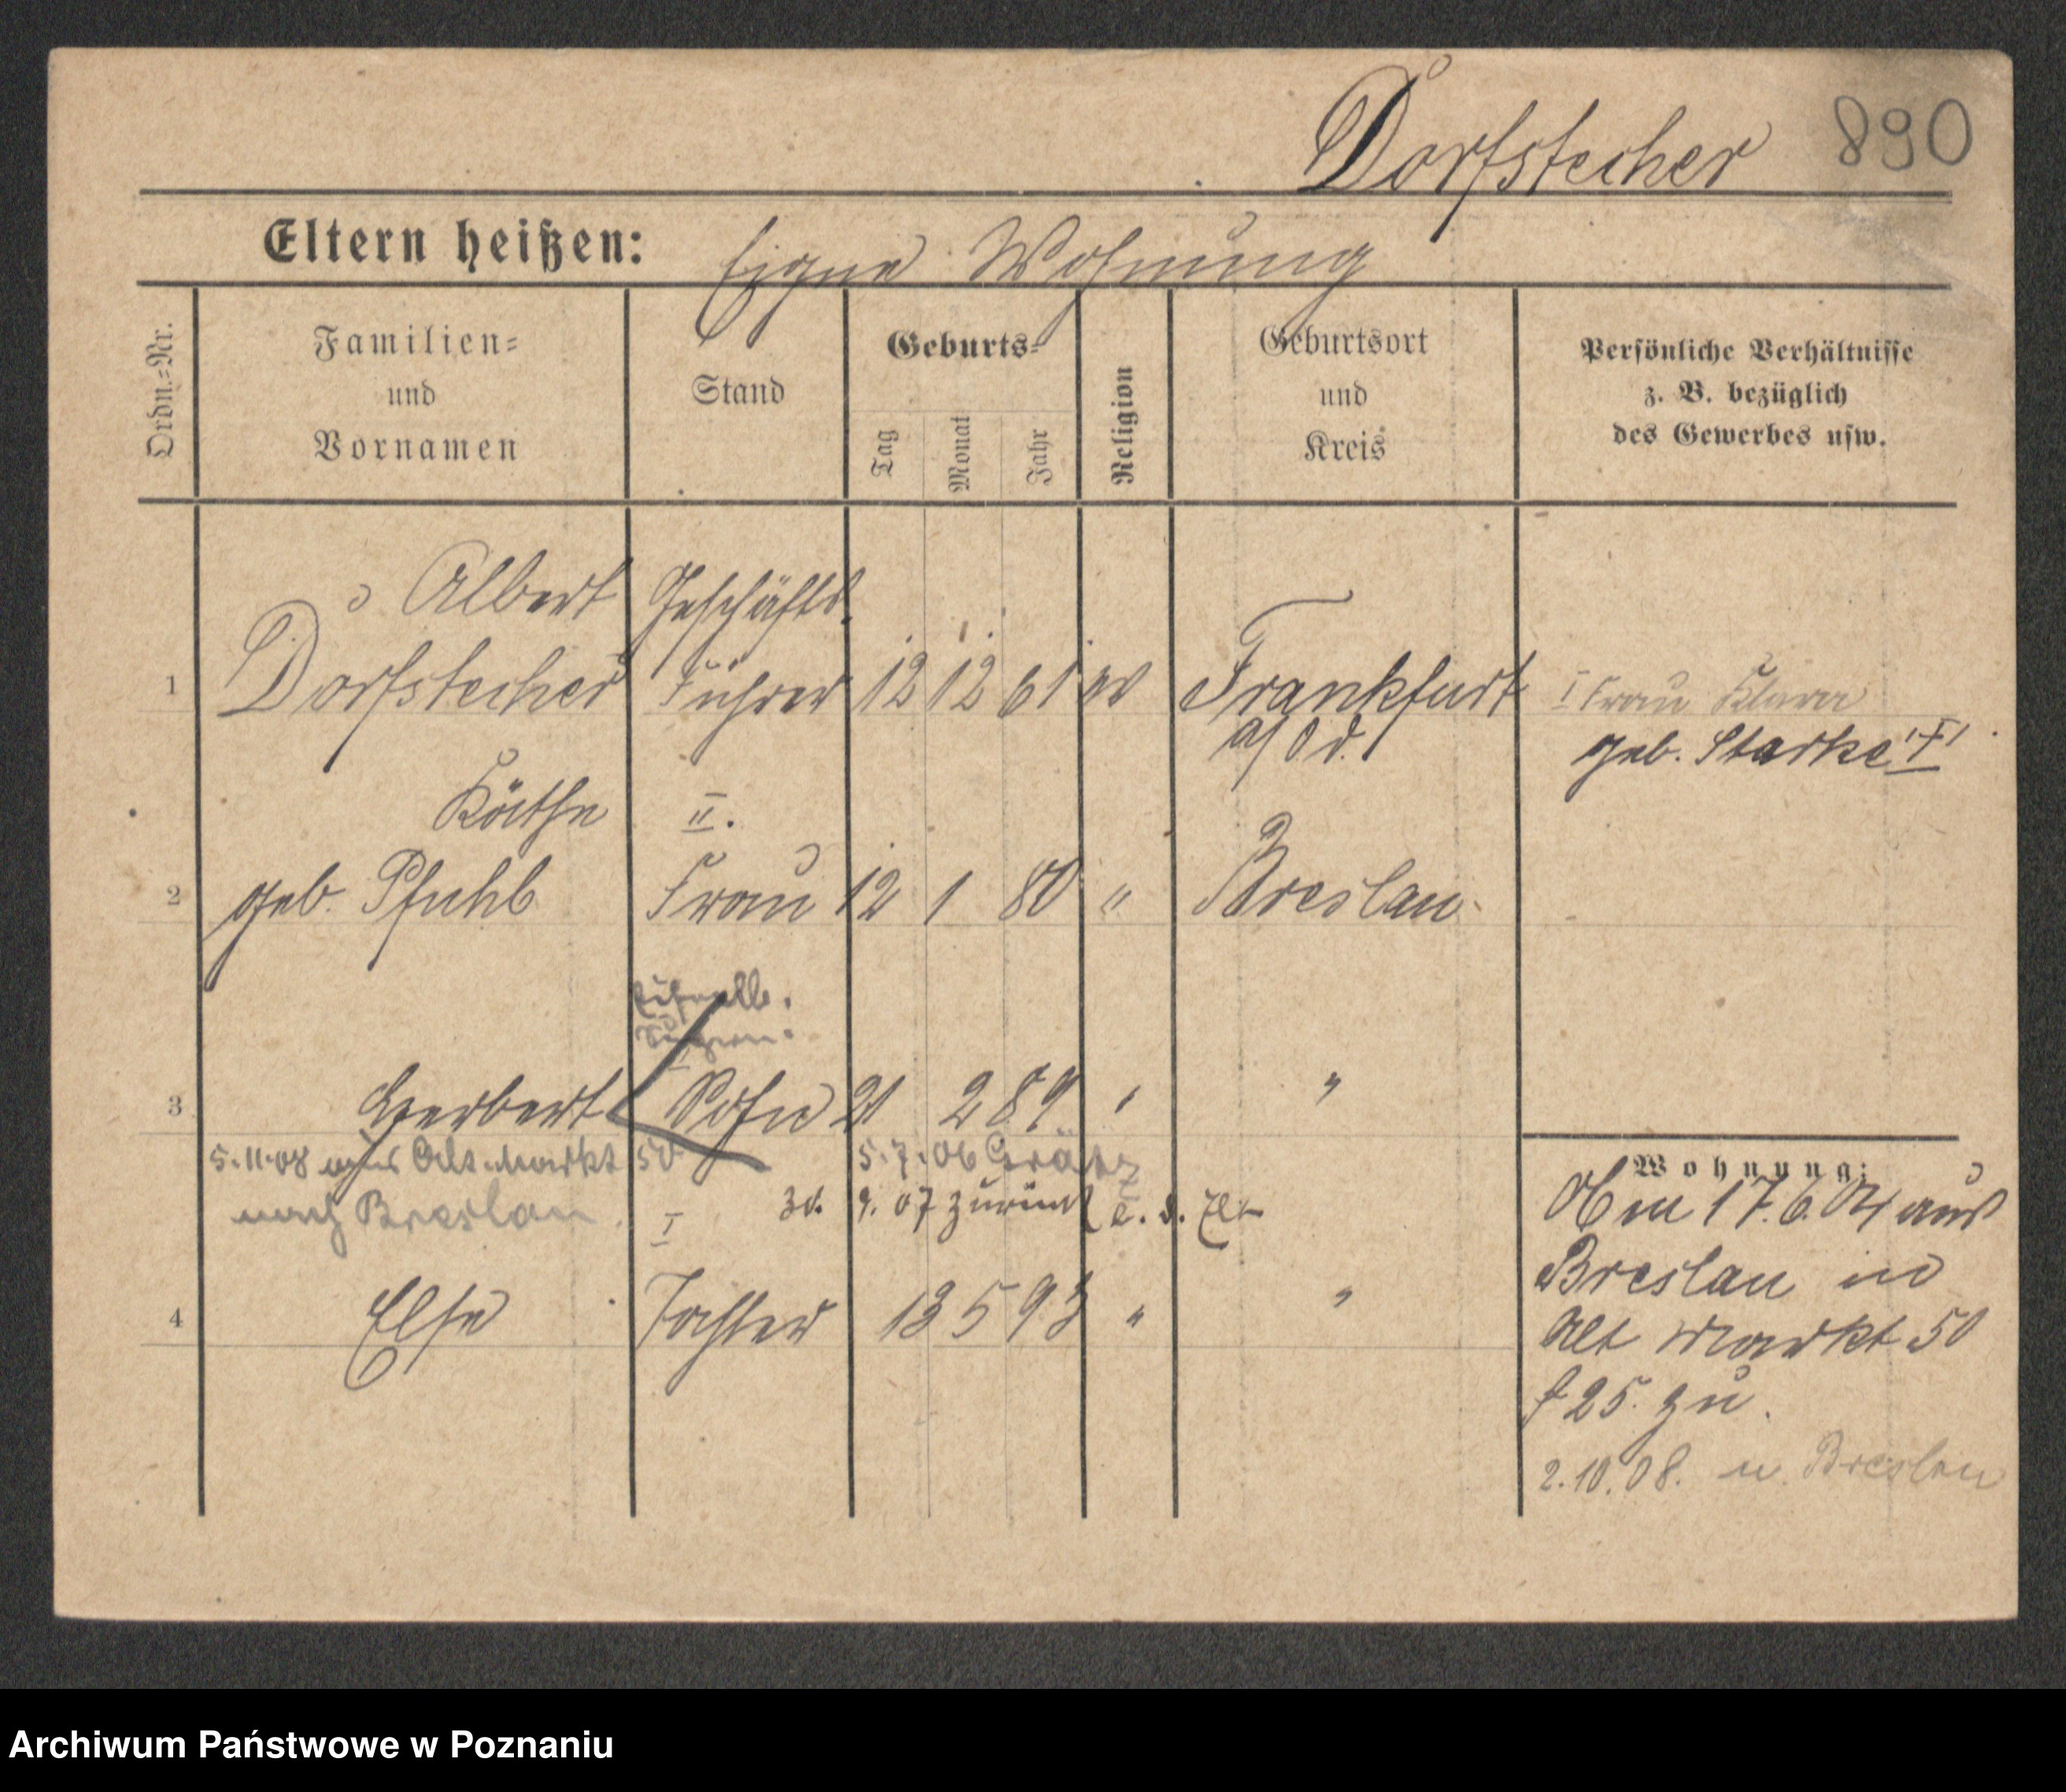 Dorfstecher 890
Eltern heißen: Eigene Wohnung
Ordn.=Nr.
Familien=
und
Vornamen
Stand
Geburts=
Tag
Monat
Jahr
Religion
Geburtsort
und
Kreis
Persönliche Verhältnisse
z. B. bezüglich
des Gewerbes usw.
Albert Geschäfts.
1 Dorfstecher Führer 12 12 61 ev Frankfurt I Frau Klara
a/Od. geb. Starke †
Käthe II.
2 geb. Pfuhl Frau 12 1 80 " Breslau
I
3 Herbert Sohn 21 2 89 " "
5.11.08 Alt. Markt 50 5.7.06 Grätz
nach Breslau 9. 07 zurück
I
4 Else Tochter 13 5 93 " "
Wohnung:
17.6.04 aus
Breslau in
Alt Markt 50
f 25. zu.
2.10.08. n. Breslau
Archiwum Państwowe w Poznaniu